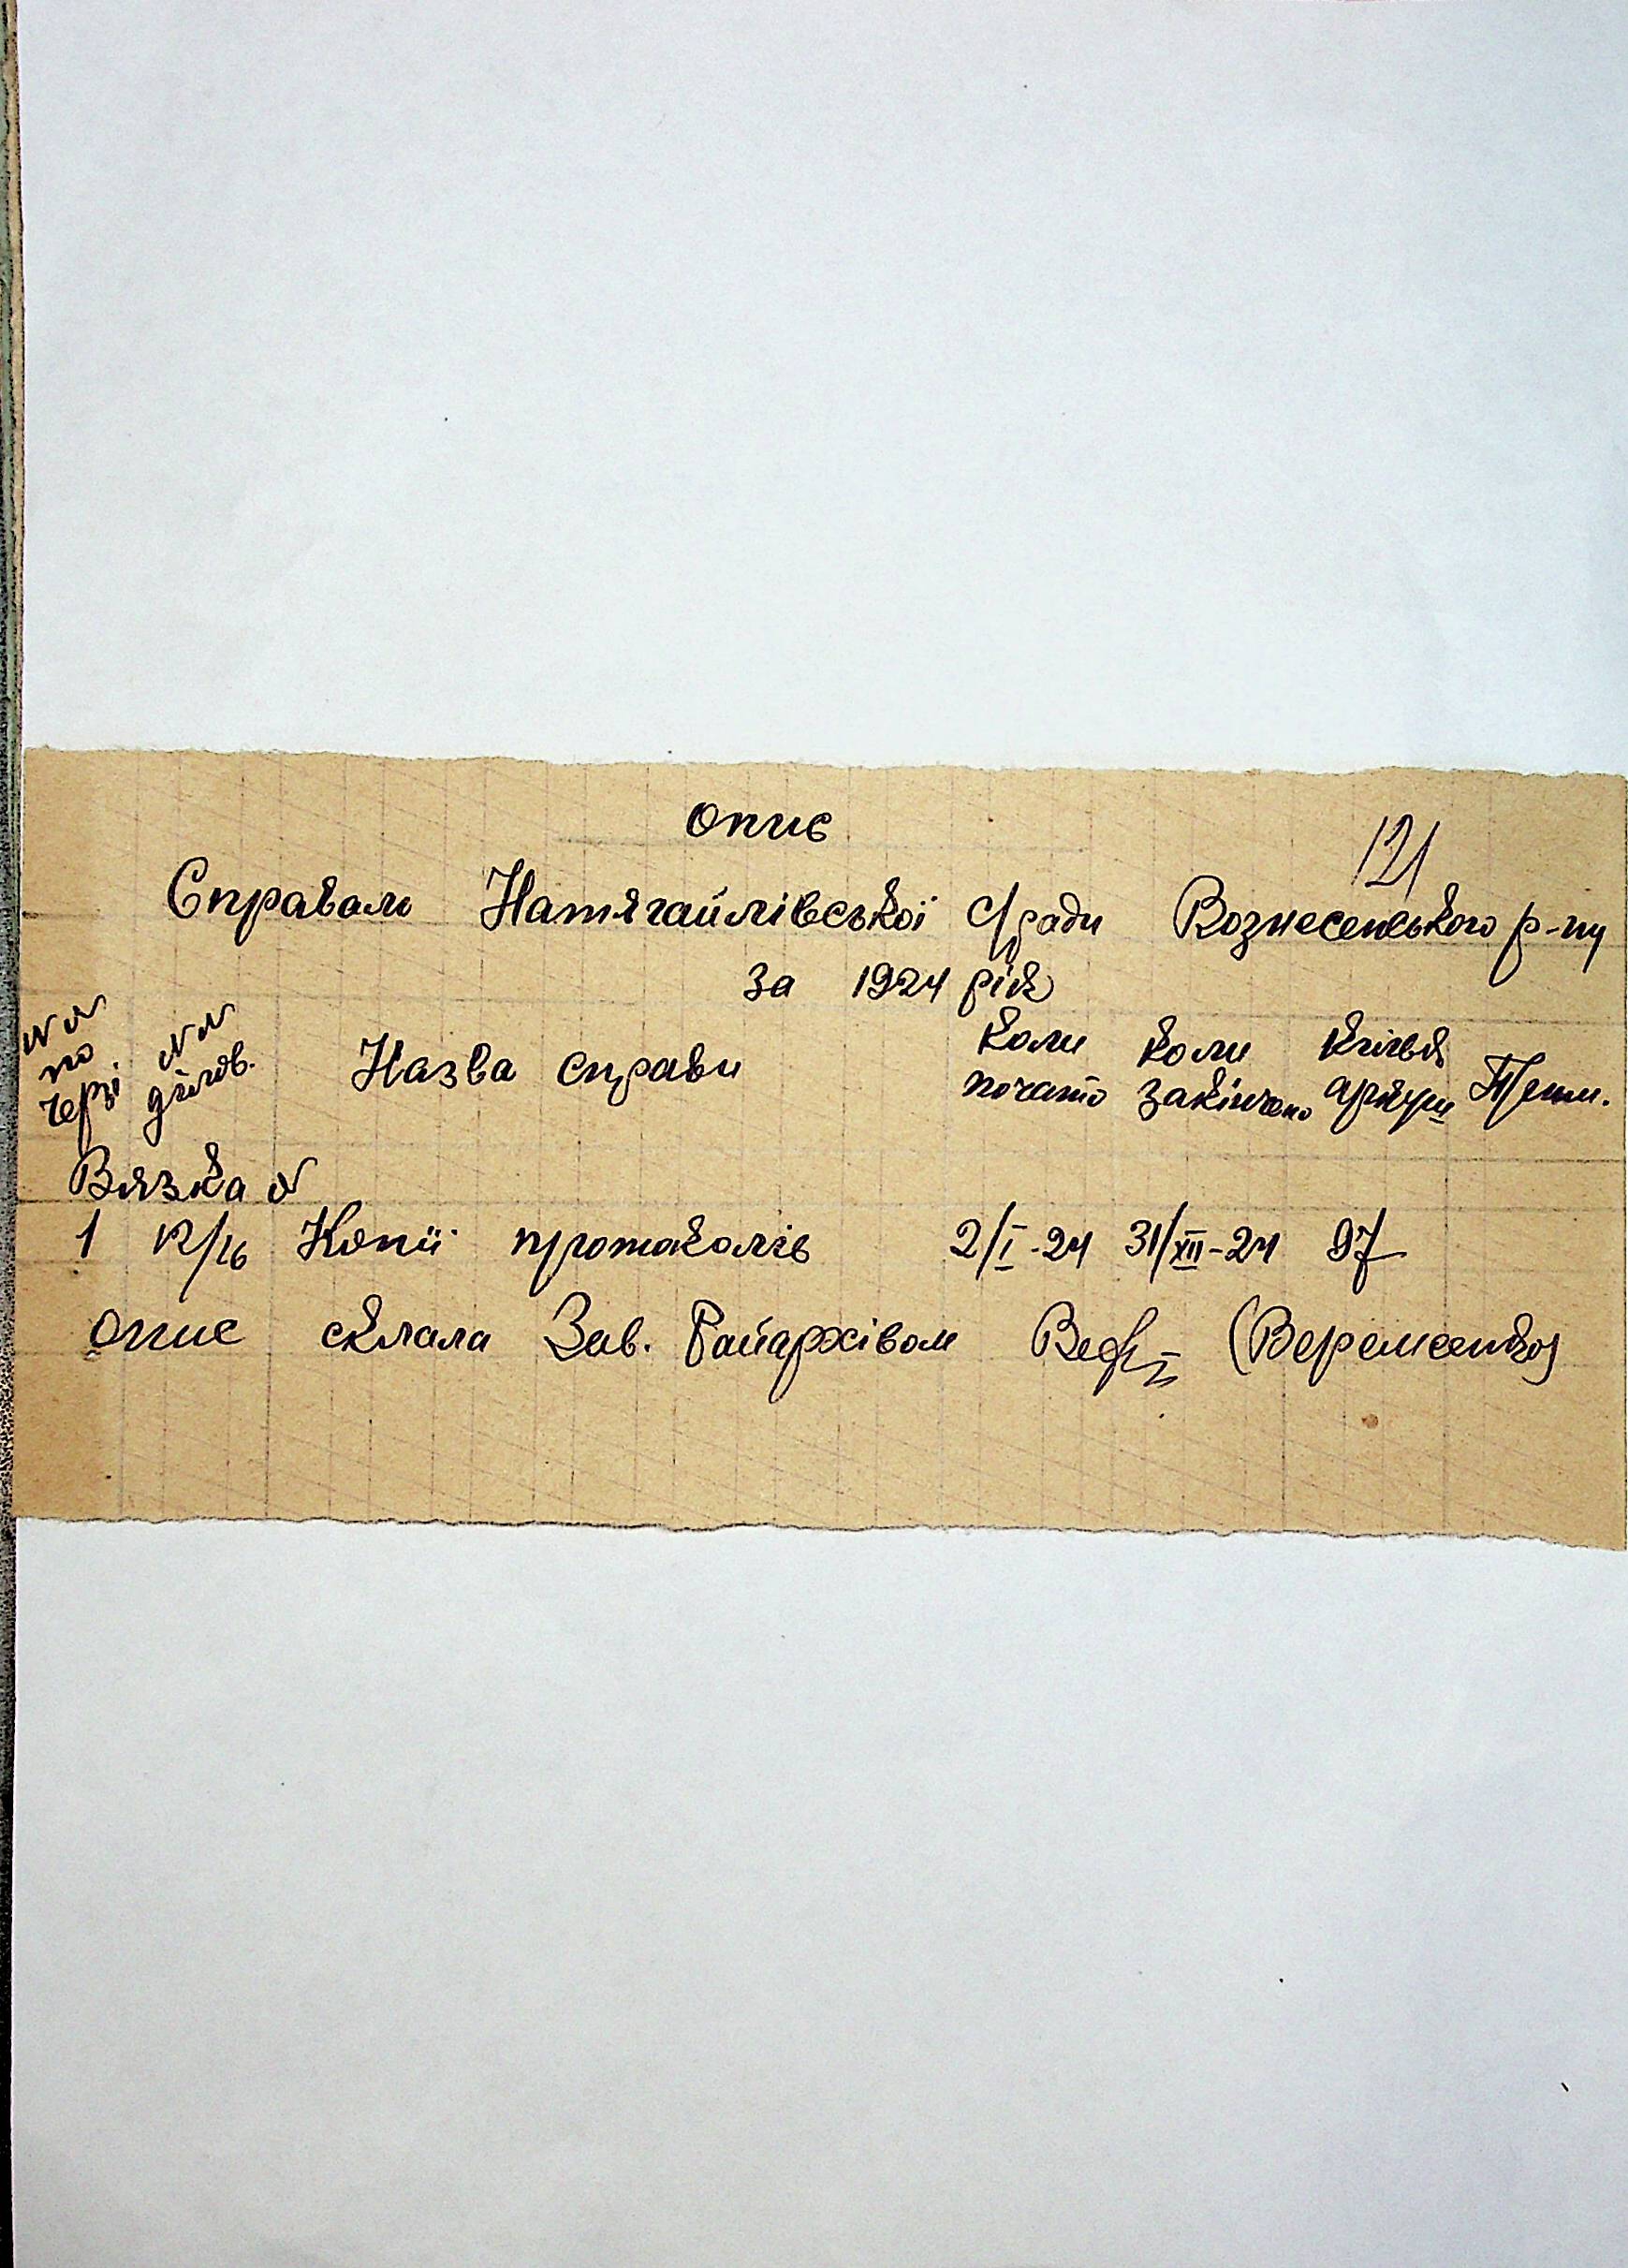 Опис
121
Справам Натягайлівської С/ради Вознесенського р-ну
за 1924 рік
№№ по черзі №№ діловод. Назва справи Коли почато Коли закінчено Кількість аркуш Прим.
Вязка №
1 Копії протоколів 2/I-24 31/XII-24 97
Опис склала Зав. Райархівом (Веремеенко)